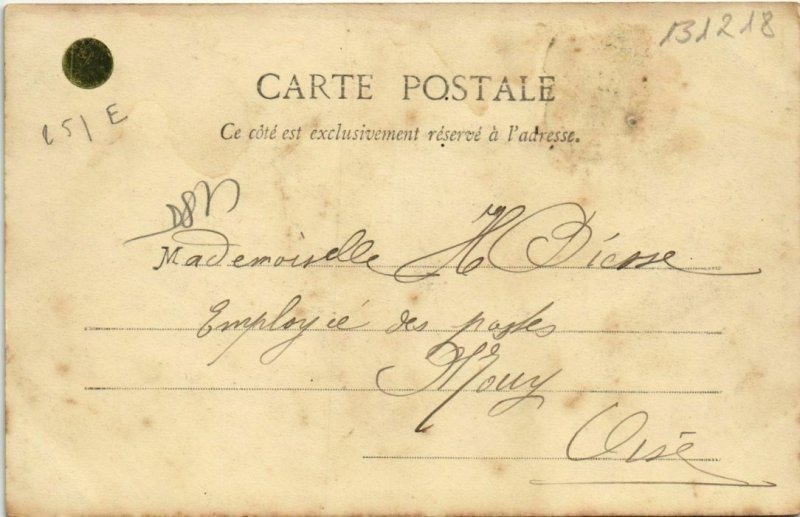 131218
CARTE POSTALE
25/ E
Ce côté est exclusivement réservé à l'adresse.
Mademoiselle H Diesse
Employé des postes
Mouy
Oise